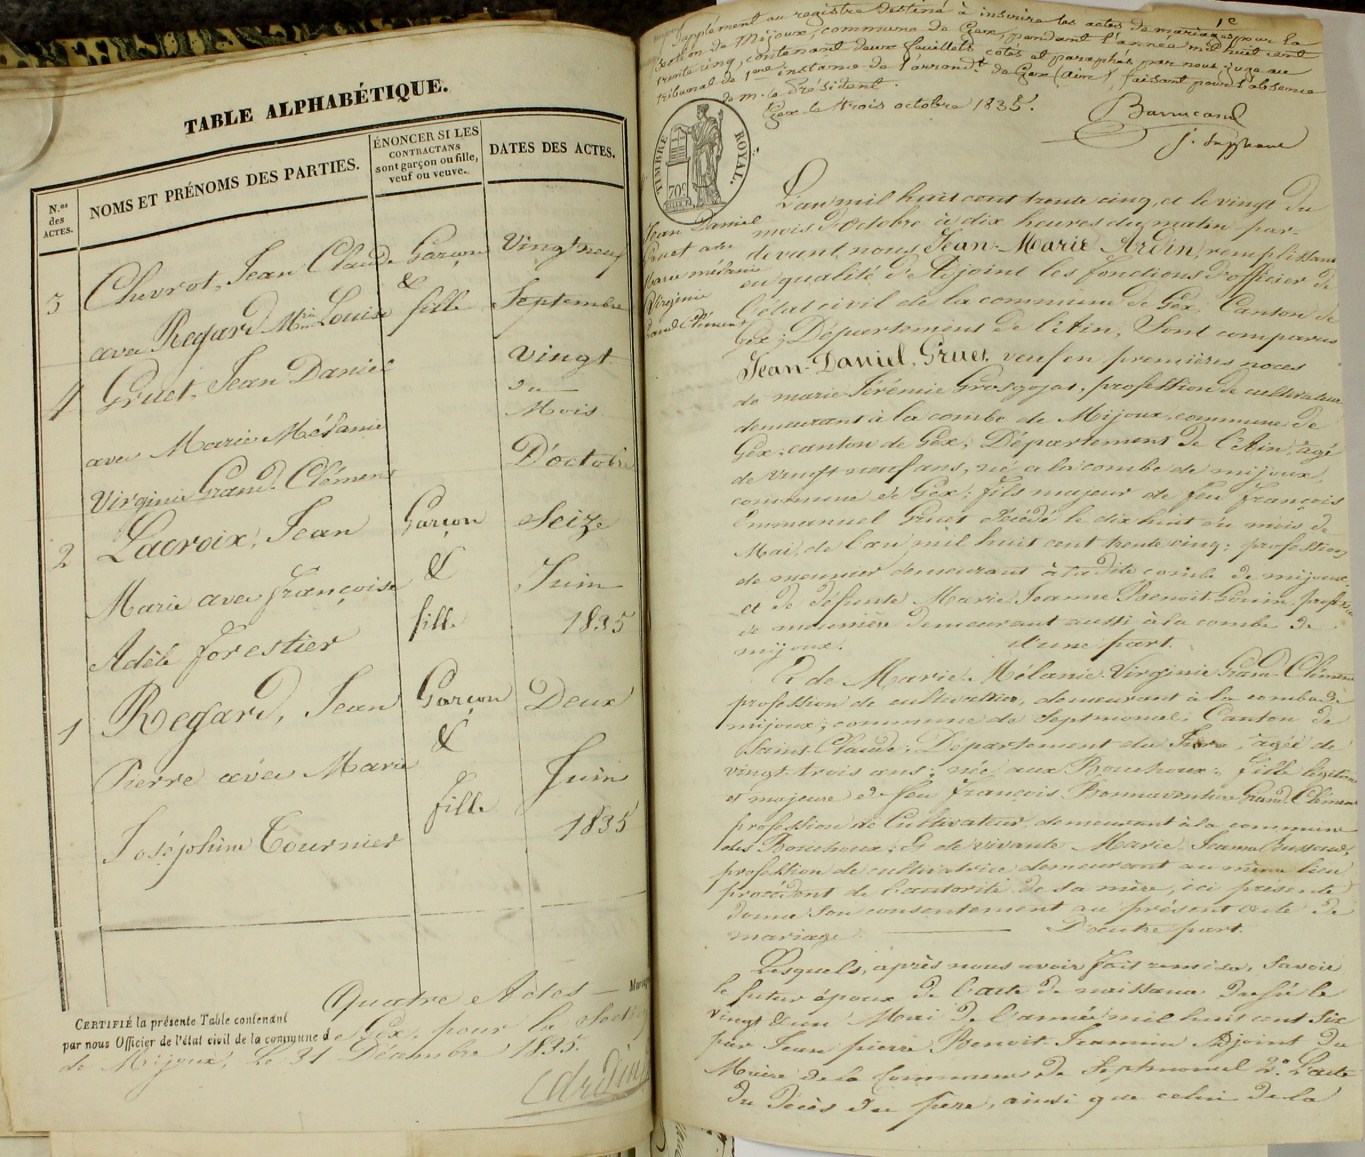 TABLE ALPHABÉTIQUE.
N.os des ACTES.
NOMS ET PRÉNOMS DES PARTIES.
ÉNONCER SI LES CONTRACTANS sont garçon ou fille, veuf ou veuve.
DATES DES ACTES.
3 Chevrot, Jean Claude Garçon Vingt neuf
&
avec Regard Mie Louise fille Septembre
4 Gruet, Jean Daniel Vingt
du
Mois
avec Marie Mélanie D'octobre
Virginie Grand Clément
2 Lacroix, Jean Garçon Seize
Marie avec françoise & Juin
Adèle forestier fille 1835
1 Regard, Jean Garçon Deux
&
Pierre avec Marie Juin
Joséphine Tournier fille 1835
Quatre Actes
CERTIFIÉ la présente Table contenant
par nous Officier de l'état civil de la commune de Gex, pour la Section
de Mijoux, Le 31 Décembre 1835.
Ardin
1e
Supplément au registre destiné à inscrire les actes de mariages pour la
Section de Mijoux, commune de Gex, pendant l'année mil huit cent
trente cinq, contenant deux feuillets cotés et paraphés par nous juge au
tribunal de 1ere instance de l'arrondt. de Gex (ain) faisant pour l'absence
de m. le Président.
Gex le trois octobre 1835.
Barrucand
j. suppléant
TIMBRE ROYAL.
70c
Jean Daniel
Gruet avec
Marie mélanie
Virginie
Grand Clément
L'an mil huit cent trente cinq, et le vingt du
mois d'Octobre à dix heures du matin par-
devant nous Jean-Marie Ardin, remplissant
en qualité d'Adjoint les fonctions d'officier de
l'état civil de la commune de Gex, Canton de
Gex; Département de l'Ain, Sont comparus
Jean-Daniel, Gruet, veuf en premières noces
de marie Jérémie Grosgojat, profession de cultivateur
demeurant à la combe de Mijoux, commune de
Gex; canton de Gex; Département de l'Ain, âgé
de vingt neuf ans, né a la combe de mijoux,
commune de Gex; fils majeur de feu françois
Emmanuel Gruet décédé le dix huit du mois de
Mai, de l'an mil huit cent trente cinq; profession
de meunier demeurant à la dite combe de mijoux,
et de défunte Marie Jeanne Benoit Gouin, profession
de meunière demeurant aussi à la combe de
mijoux. d'une part.
& de Marie Mélanie Virginie Grand Clément
profession de cultivatrice, demeurant à la combe de
mijoux; commune de Septmoncel; Canton de
Saint Claude, Département du Jura, agée de
vingt trois ans; née aux Bouchoux; fille légitime
et majeure de feu françois Bonnaventure Grand Clément
profession de Cultivateur, demeurant à la commune
des Bouchoux; et de vivante Marie Jeanne
profession de cultivatrice demeurant au même lieu
procédant de l'autorité de sa mère, ici présente
donne son consentement au présent acte de
mariage. D'autre part.
Lesquels, après nous avoir fait remise, Savoir
le futur époux de l'acte de naissance dressé le
vingt d'un Mai de l'année mil huit cent Six
par Jean pierre Benoit Jeannin Adjoint du
Maire de la Commune de Septmoncel 2.o L'acte
du décès du père, ainsi que celui de la